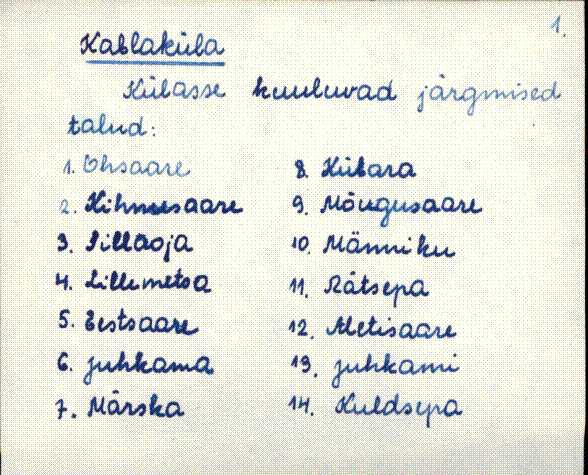 1.
Kablaküla
Külasse kuuluvad järgmised
talud:
1. Ohsaare
2. Kihmesaare
3. Sillaoja
4. Lillemetsa
5. Eestsaare
6. Juhkama
7. Märska
8. Kübara
9. Mõugusaare
10. Männiku
11. Rätsepa
12. Aletisaare
13. Juhkami
14. Kuldsepa